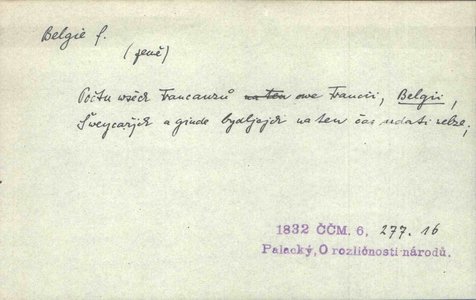 Belgie f.
(země)
Počtu wšech Francauzů na ten owe Francii, Belgii,
Šweycařjch a ginde bydljcjch na ten čas udati nelze;
1832 ČČM. 6, 277. 16
Palacký, O rozličnosti národů.